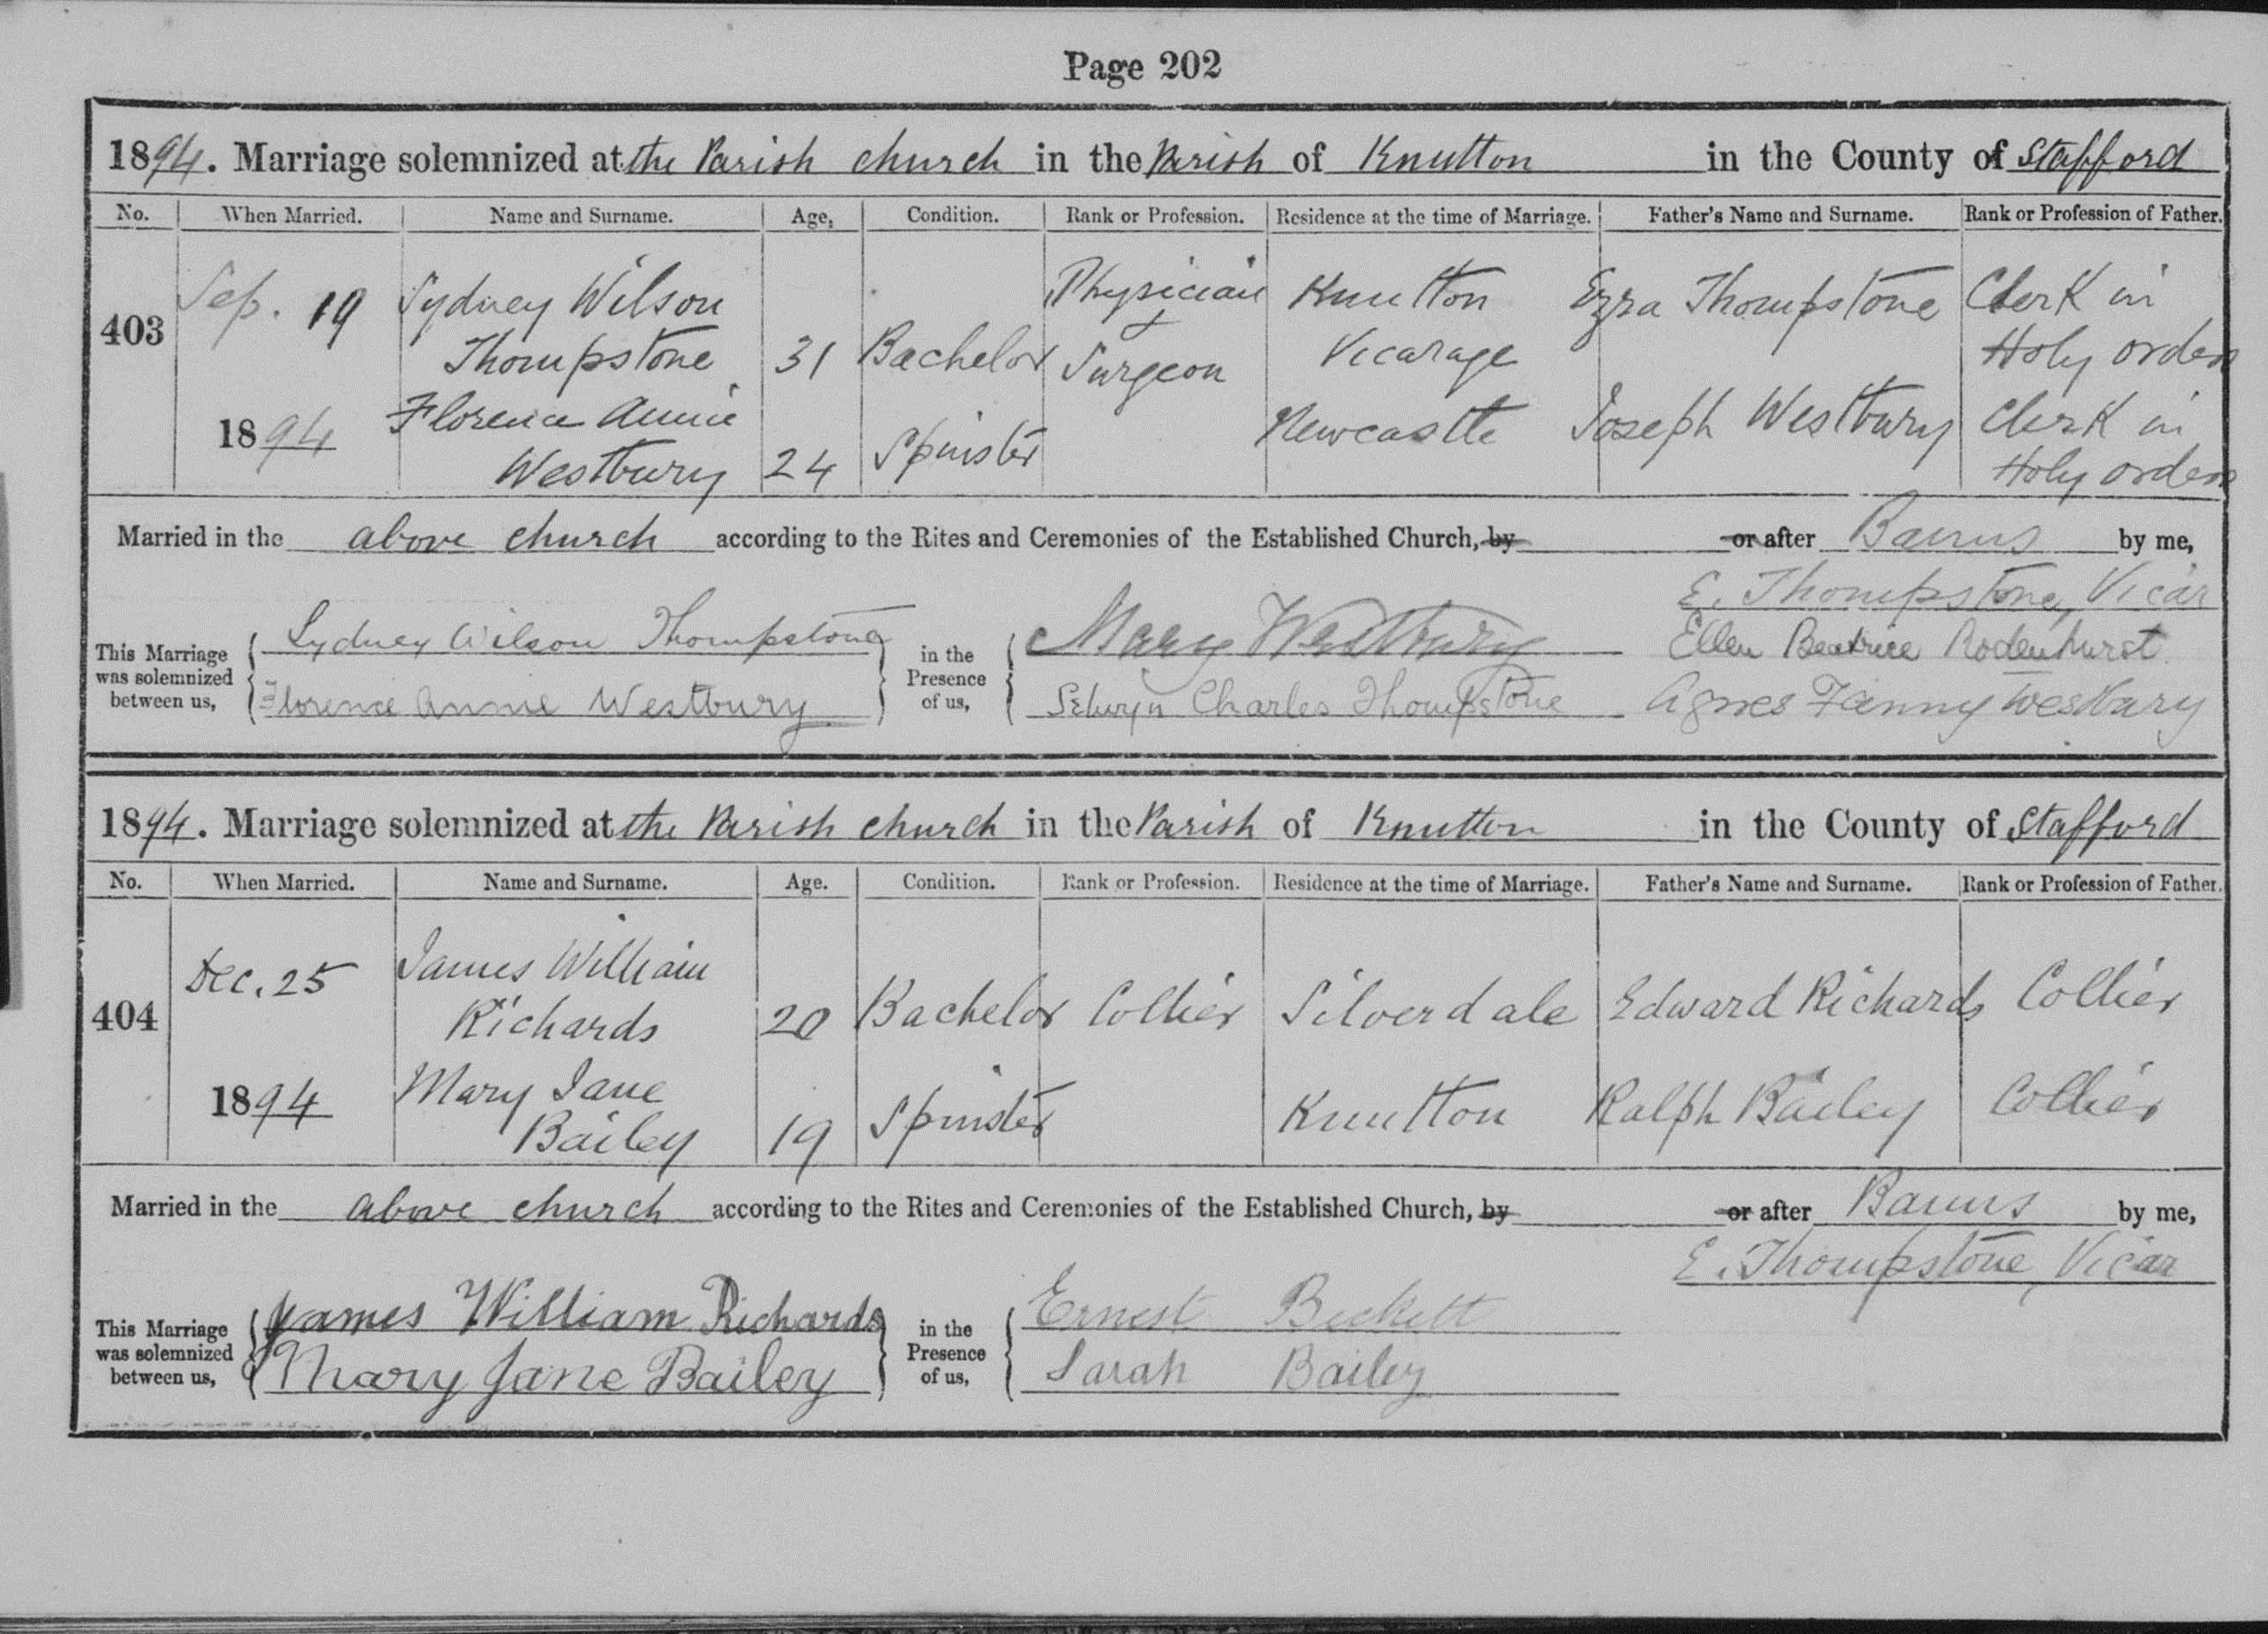 Page 202
1894. Marriage solemnized at the Parish church in the Parish of Knutton in the County of Stafford
No. When Married. Name and Surname. Age, Condition. Rank or Profession. Residence at the time of Marriage. Father's Name and Surname. Rank or Profession of Father.
Sep. 19 Sydney Wilson Physician Knutton Ezra Thompstone Clerk in
403 Thompstone 31 Bachelor & Surgeon Vicarage Holy orders
1894 Florence Annie Newcastle Joseph Westbury Clerk in
Westbury 24 Spinster Holy orders
Married in the above church according to the Rites and Ceremonies of the Established Church, by or after Banns by me,
E. Thompstone, Vicar
This Marriage was solemnized between us, Sydney Wilson Thompstone in the Presence of us, Mary Westbury Ellen Beatrice Rodenhurst
Florence Annie Westbury Selwyn Charles Thompstone Agnes Fanny Westbury
1894. Marriage solemnized at the Parish church in the Parish of Knutton in the County of Stafford
No. When Married. Name and Surname. Age. Condition. Rank or Profession. Residence at the time of Marriage. Father's Name and Surname. Rank or Profession of Father.
Dec. 25 James William
404 Richards 20 Bachelor Collier Silverdale Edward Richards Collier
1894 Mary Jane Knutton Ralph Bailey Collier
Bailey 19 Spinster
Married in the above church according to the Rites and Ceremonies of the Established Church, by or after Banns by me,
E. Thompstone, Vicar
This Marriage was solemnized between us, James William Richards in the Presence of us, Ernest Beckett
Mary Jane Bailey Sarah Bailey